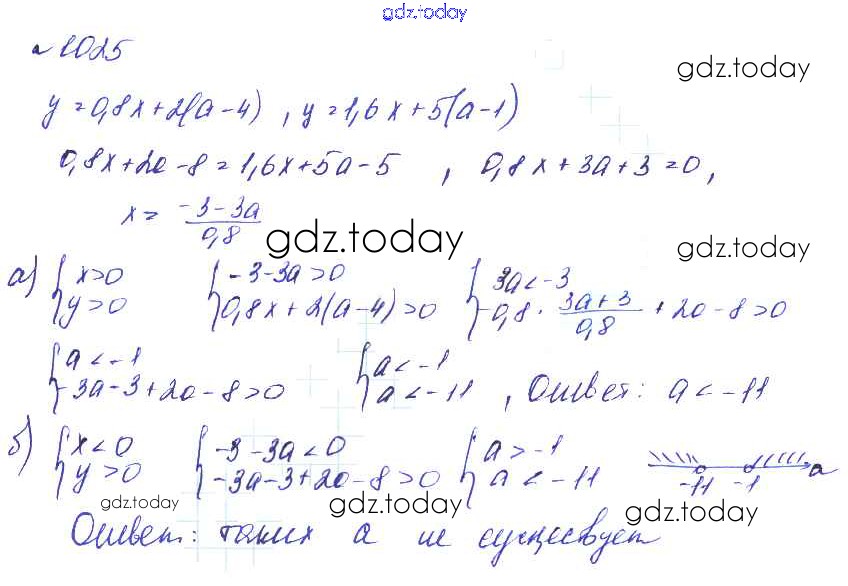 gdz.today
№ 1025
gdz.today
y = 0,8x + 2(a - 4) , y = 1,6x + 5(a - 1)
0,8x + 2a - 8 = 1,6x + 5a - 5 , 0,8x + 3a + 3 = 0,
x = (-3 - 3a)/0,8
gdz.today gdz.today
а) { x > 0 { -3 - 3a > 0 { 3a < -3
{ y > 0 { 0,8x + 2(a - 4) > 0 { -0,8 · (3a + 3)/0,8 + 2a - 8 > 0
{ a < -1 { a < -1
{ -3a - 3 + 2a - 8 > 0 { a < -11 , Ответ: a < -11
б) { x < 0 { -3 - 3a < 0 { a > -1
{ y > 0 { -3a - 3 + 2a - 8 > 0 { a < -11 -11 -1 a
gdz.today gdz.today gdz.today
Ответ: таких a не существует